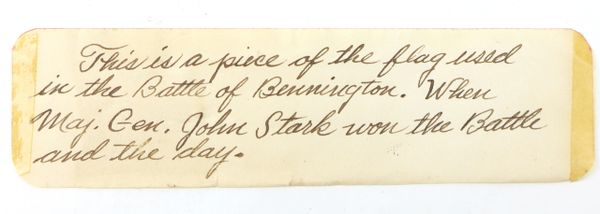 This is a piece of the flag used
in the Battle of Bennington. When
Maj. Gen. John Stark won the Battle
and the day.